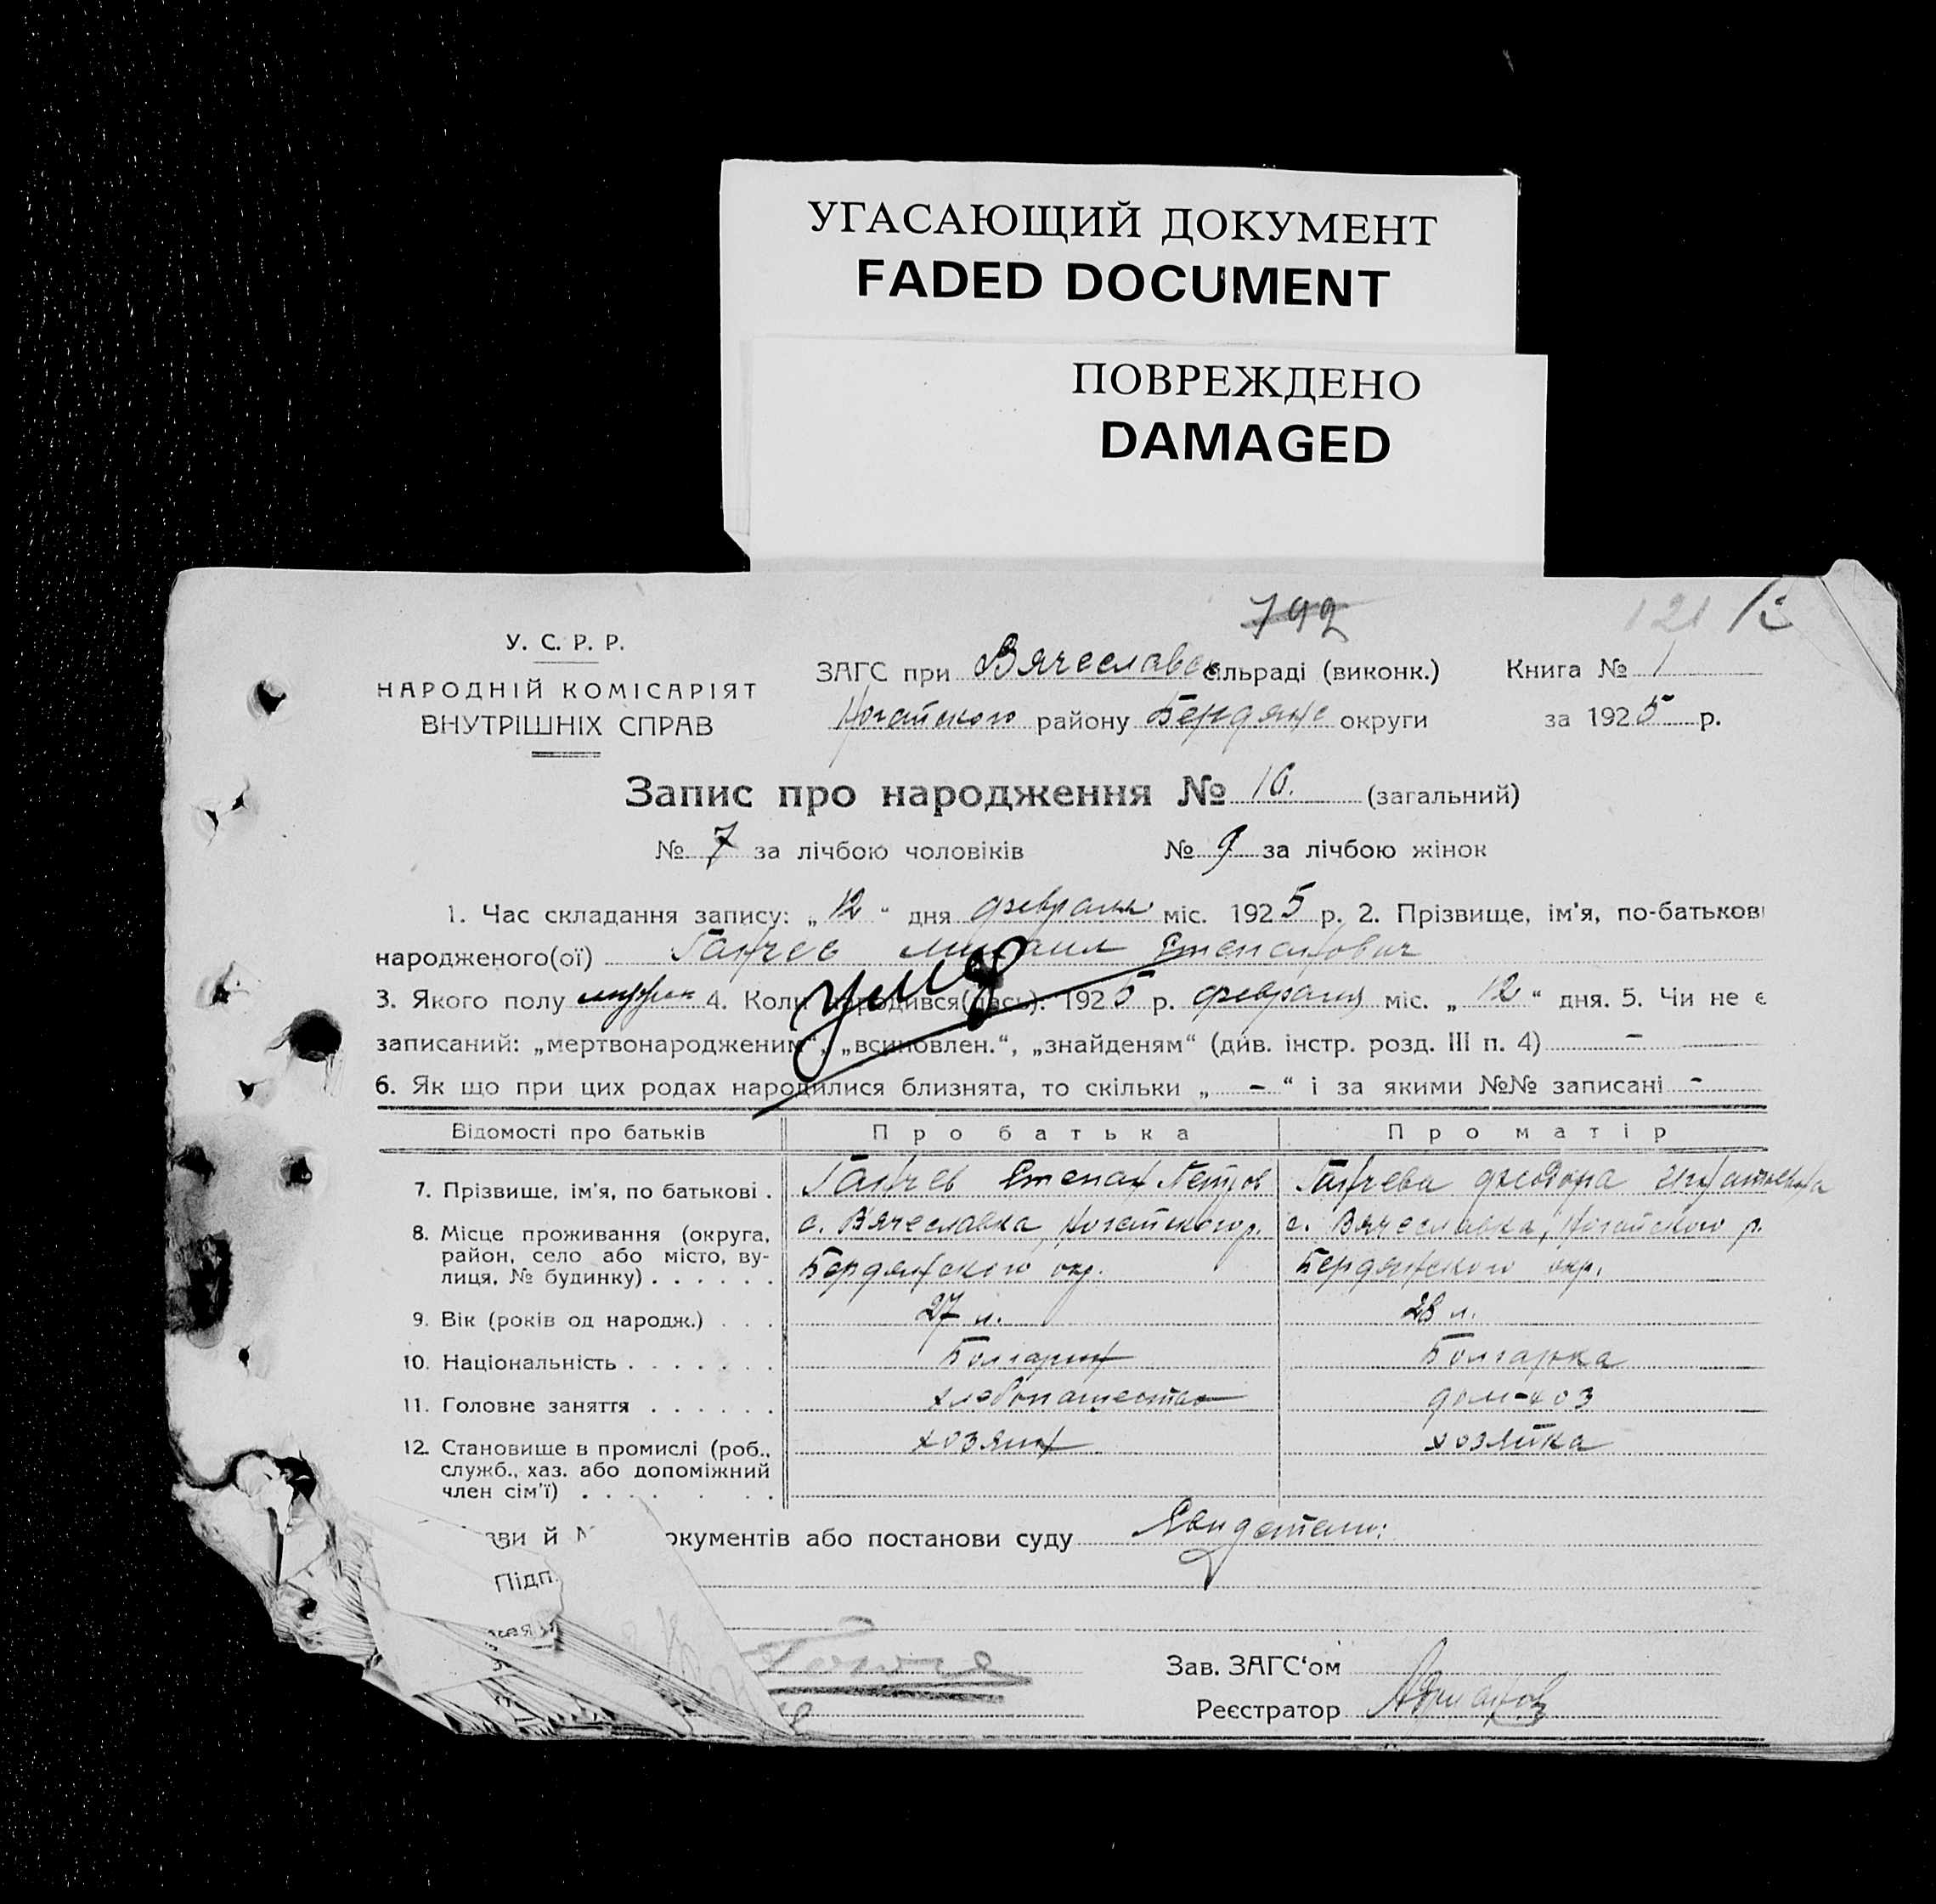 УГАСАЮЩИЙ ДОКУМЕНТ
FADED DOCUMENT
ПОВРЕЖДЕНО
DAMAGED
792
121
У. С. Р. Р.
НАРОДНІЙ КОМІСАРІЯТ
ВНУТРІШНІХ СПРАВ
ЗАГС при Вячеславск сільраді (виконк.) Книга № 1
Ногайского району Бердянс округи за 1925 р.
Запис про народження № 16. (загальний)
№ 7 за лічбою чоловіків № 9 за лічбою жінок
1. Час складання запису: „12“ дня февраля міс. 1925 р. 2. Прізвище, ім'я, по-батькові
народженого(ої) Ганчев Михаил Степанович
умер
3. Якого полу мужск 4. Коли народився(лась). 1925 р. февраля міс. „12“ дня. 5. Чи не є
записаний: „мертвонародженим“, „всиновлен.“, „знайденям“ (див. інстр. розд. III п. 4) -
6. Як що при цих родах народилися близнята, то скільки „-“ і за якими №№ записані -
Відомості про батьків Про батька Про матір
7. Прізвище, ім'я, по батькові . Ганчев Степан Петров Ганчева Феодора Игнатьевна
8. Місце проживання (округа, с. Вячеславка, Ногайского р. с. Вячеславка, Ногайского р.
район, село або місто, ву-
лиця, № будинку) . . . . . . Бердянского окр. Бердянского окр.
9. Вік (років од народж.) . . . 27 л. 28 л.
10. Національність . . . . . . . Болгарин Болгарка
11. Головне заняття . . . . . . хлебопашество дом-хоз
12. Становище в промислі (роб., хозяин хозяйка
служб., хаз. або допоміжний
член сім'ї) . . . . . . .
зви й № окументів або постанови суду Свидетели:
Підп.
Зав. ЗАГС‘ом
Реєстратор